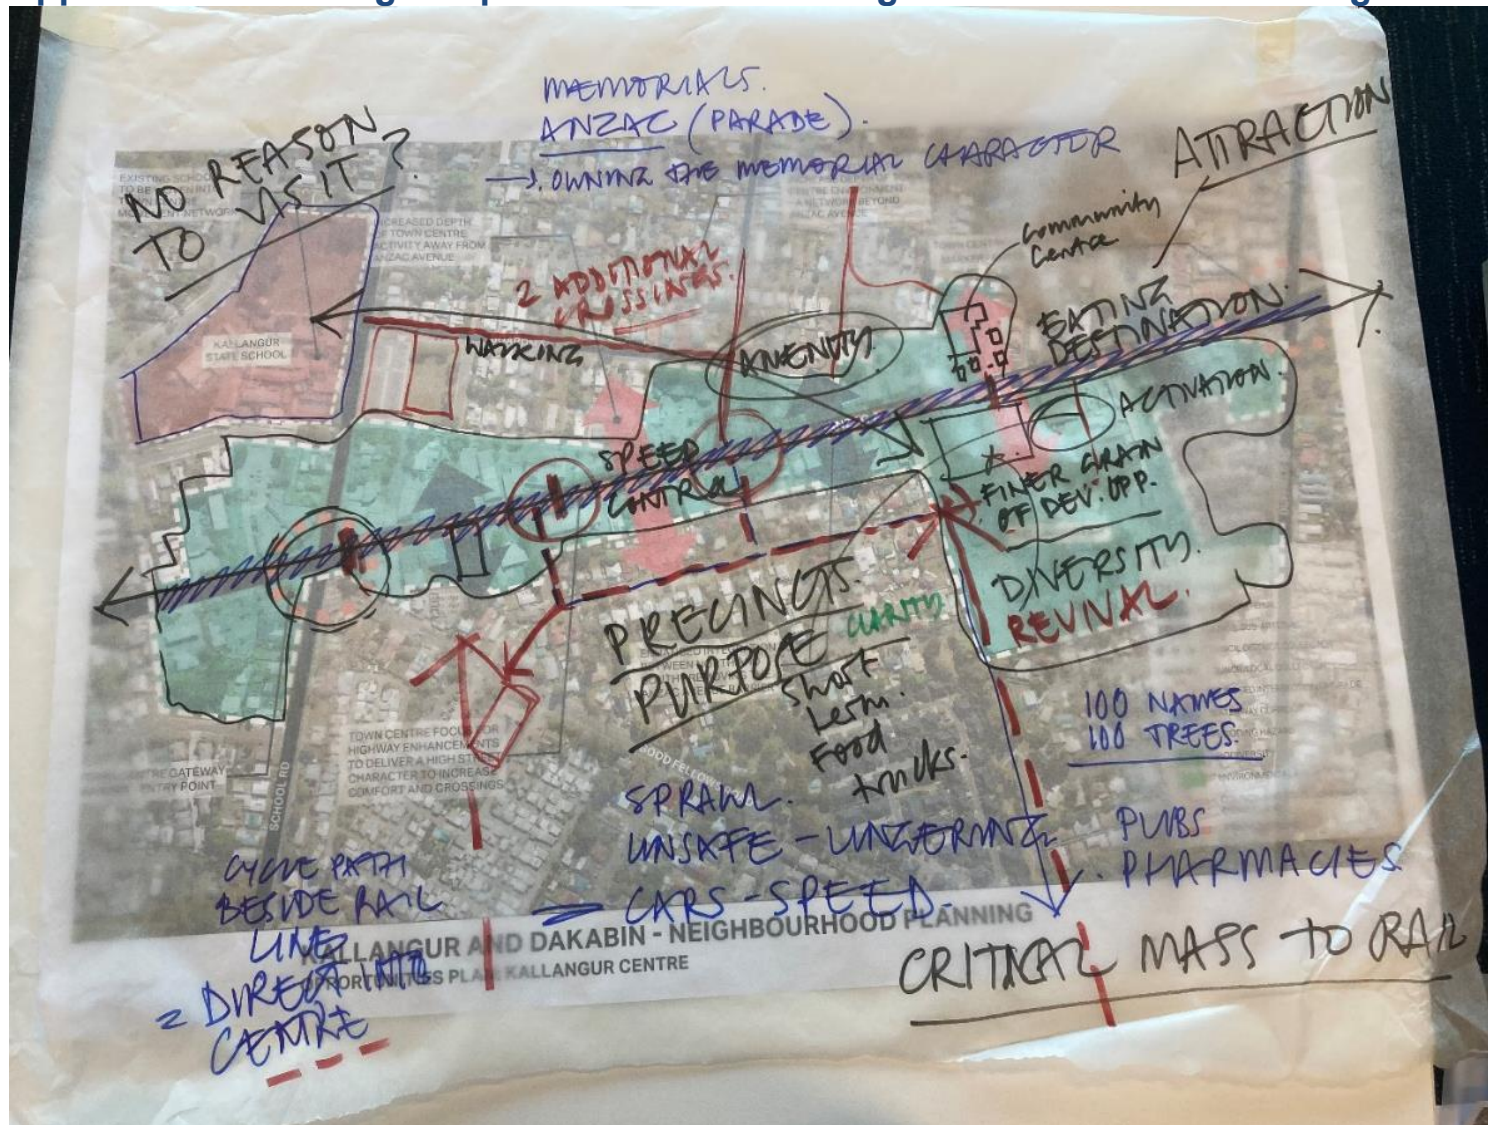 MEMORIALS.
ANZAC (PARADE).
→ OWNING THE MEMORIAL CHARACTER
ATTRACTION
NO REASON
TO VISIT?
EXISTING SCHOOL
TO BE
INCREASED DEPTH
OF TOWN CENTRE
ACTIVITY AWAY FROM
ANZAC AVENUE
A NETWORK BEYOND
ANZAC AVENUE
Community
Centre
2 ADDITIONAL
CROSSINGS.
EATING
DESTINATION.
KALLANGUR
STATE SCHOOL
WALKING
AMENITY
ACTIVATION.
SPEED
CONTROL
FINER GRAIN
OF DEV. OPP.
DIVERSITY.
REVIVAL.
PRECINCTS.
PURPOSE
CLARITY
Short
term
Food
trucks.
100 NAMES
100 TREES.
TOWN CENTRE FOCUS FOR
HIGHWAY ENHANCEMENTS
TO DELIVER A HIGH STREET
CHARACTER TO INCREASE
COMFORT AND CROSSINGS
GATEWAY
ENTRY POINT
SCHOOL RD
SPRAWL.
UNSAFE - LINGERING
CARS - SPEED.
PUBS
PHARMACIES.
CYCLE PATH
BESIDE RAIL
LINE
DIRECT INTO
CENTRE
KALLANGUR AND DAKABIN - NEIGHBOURHOOD PLANNING
OPPORTUNITIES PLAN: KALLANGUR CENTRE
CRITICAL MASS TO RAIL